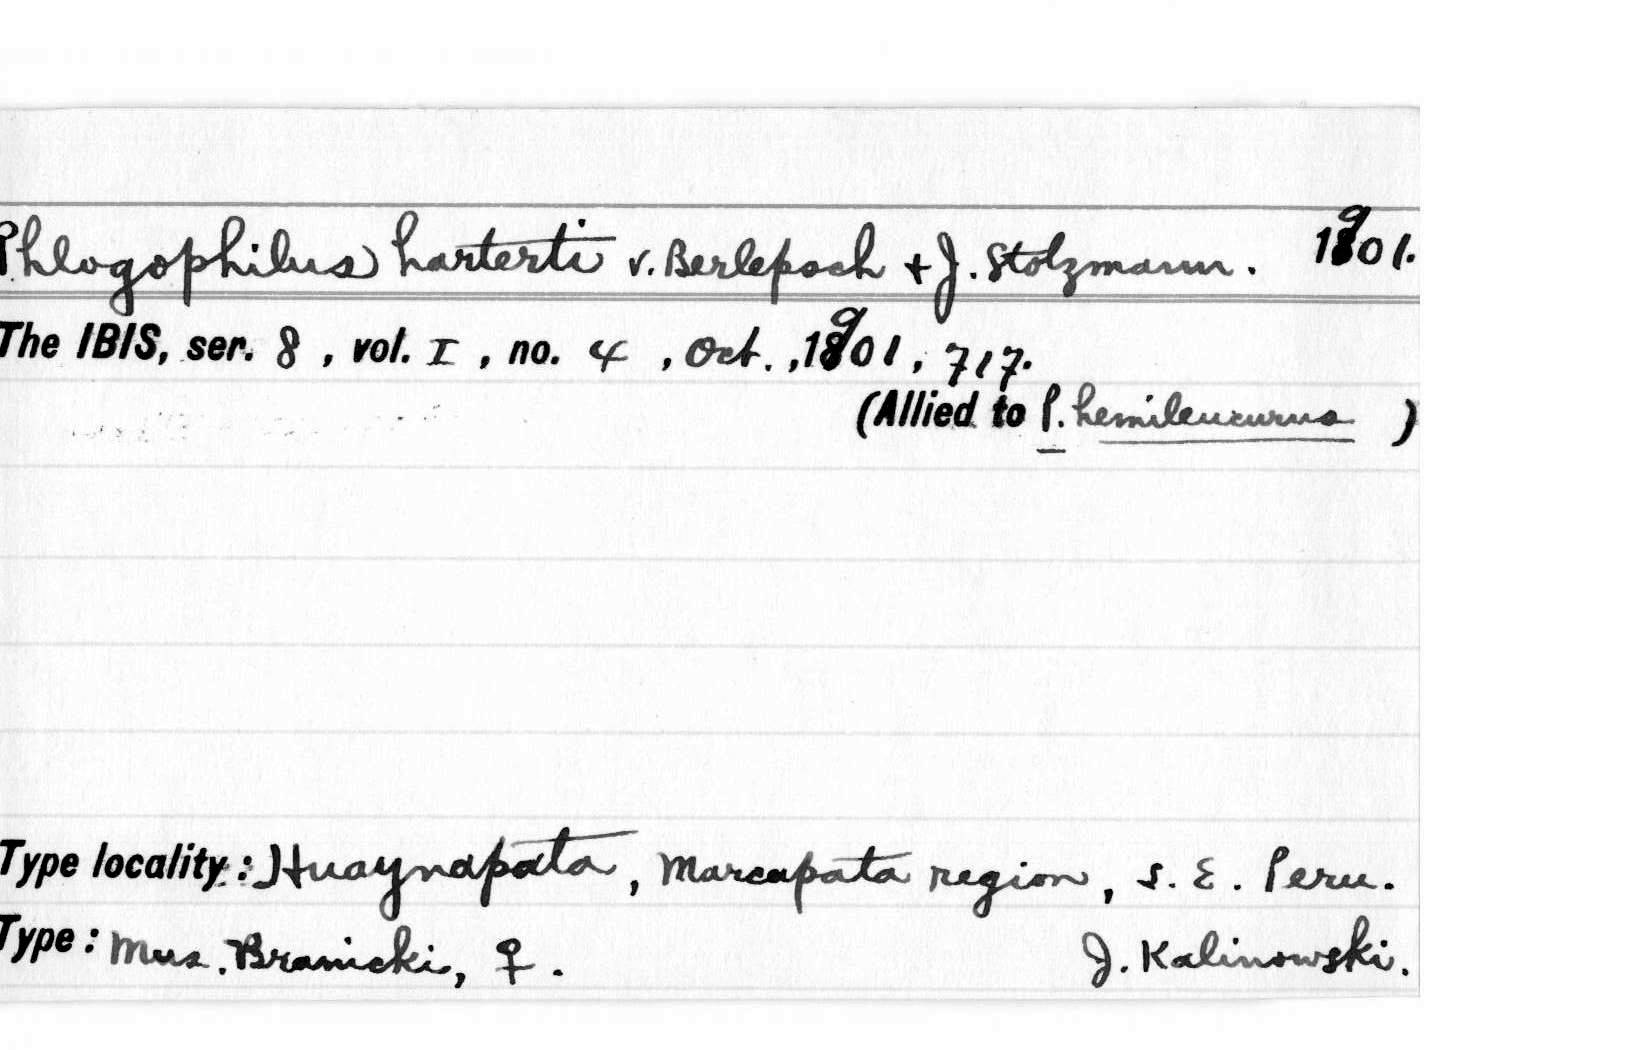 Phlogophilus harterti v. Berlepsch + J. Stolzmann. 1901.
The IBIS, ser. 8, vol. I, no. 4, Oct., 1901, 717.
(Allied to P. hemileucurus )
Type locality: Huaynapata, Marcapata region, S. E. Peru.
Type: Mus. Branicki, ♀. J. Kalinowski.